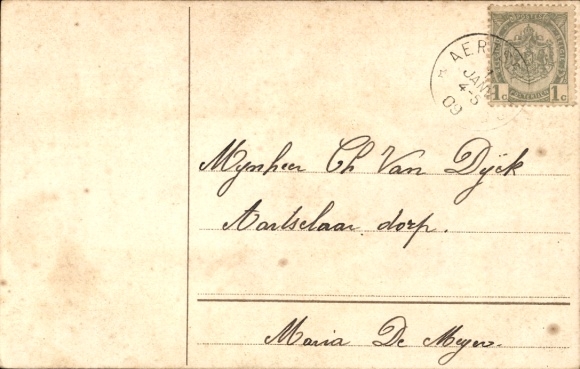 AER
JANV
4-5
09
1c 1c
Mynheer Ch Van Dÿck
Aartselaar dorp.
Maria De Meyer.